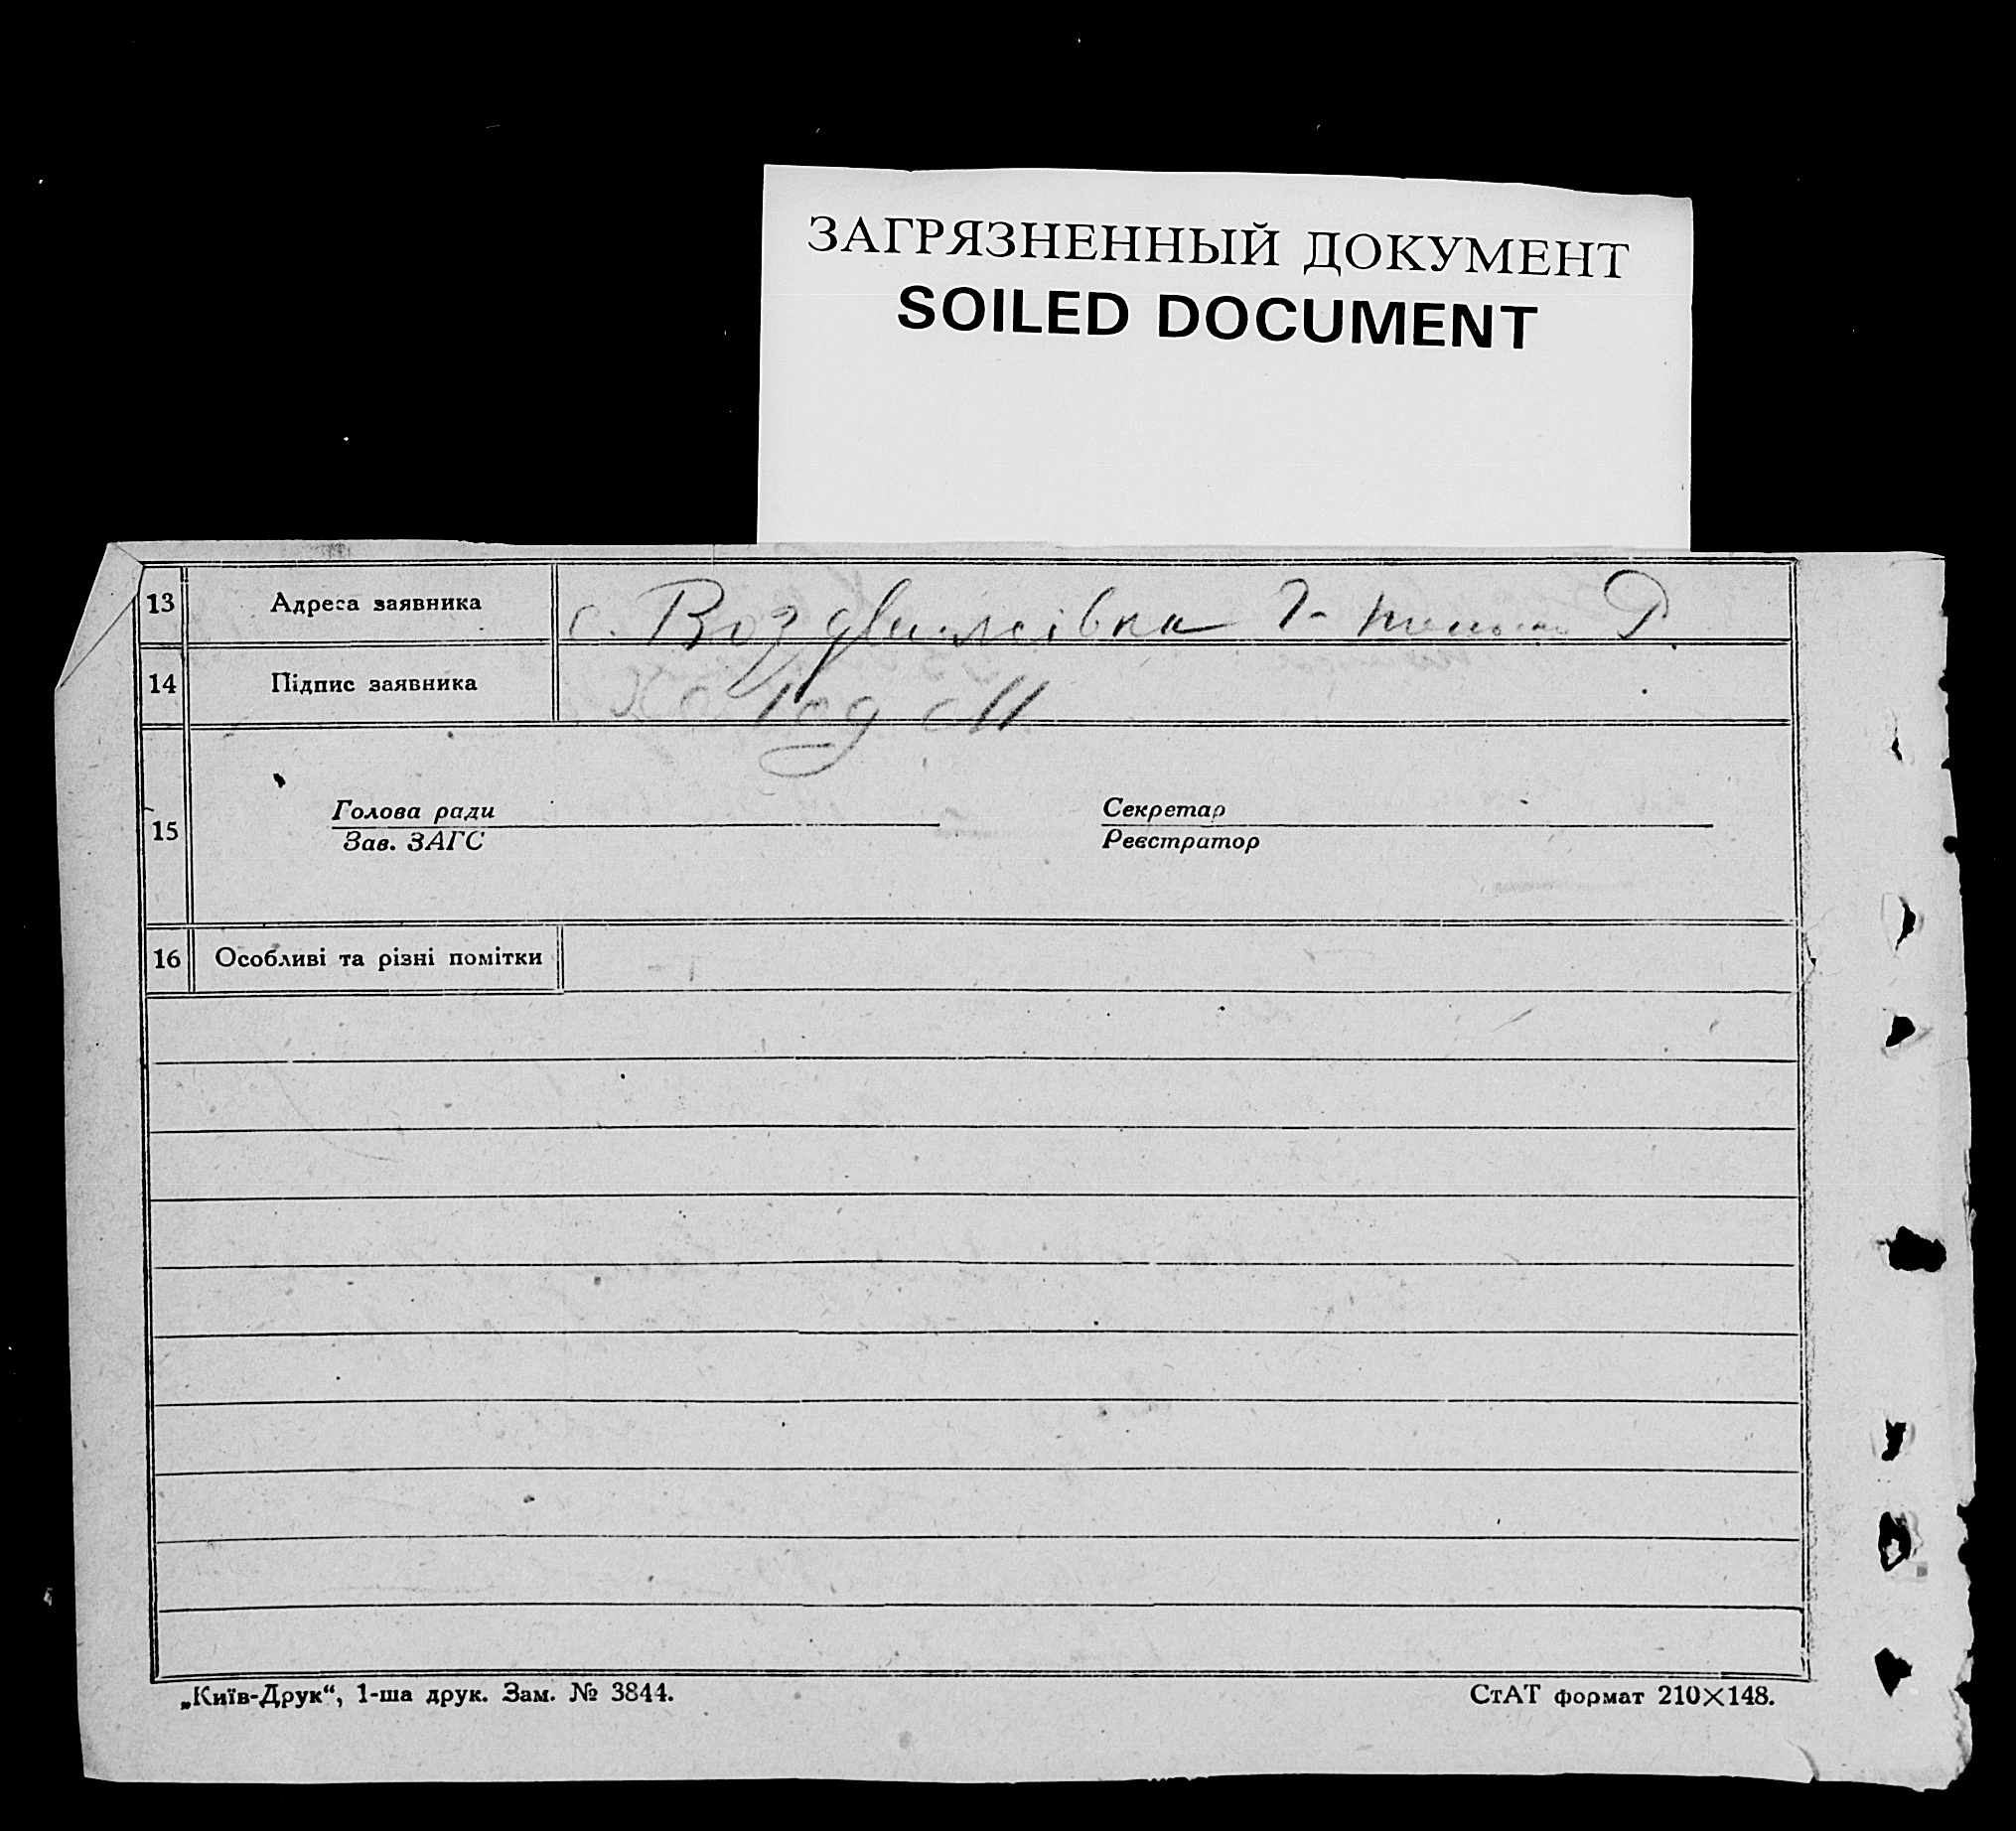 ЗАГРЯЗНЕННЫЙ ДОКУМЕНТ
SOILED DOCUMENT
13 Адреса заявника с. Воздвижівка Р.
14 Підпис заявника
15 Голова ради Секретар
Зав. ЗАГС Реєстратор
16 Особливі та різні помітки
„Київ-Друк“, 1-ша друк. Зам. № 3844. СтАТ формат 210×148.